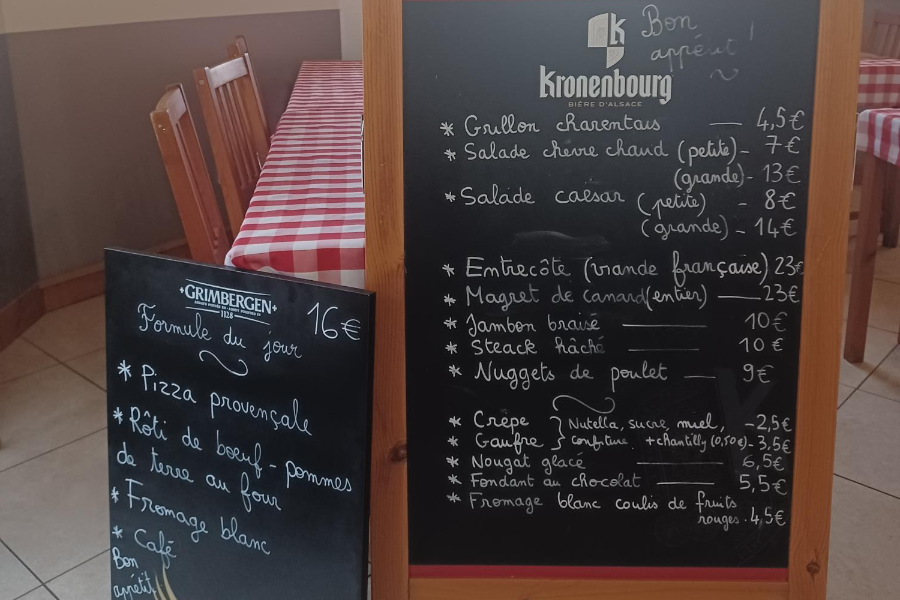 GRIMBERGEN
1128
16€
Formule du jour
* Pizza provençale
* Rôti de boeuf - pommes
de terre au four
* Fromage blanc
* Café
Bon
appétit
Bon
appétit !
Kronenbourg
BIÈRE D'ALSACE
* Grillon charentais — 4,5€
* Salade chèvre chaud (petite) - 7€
(grande) - 13€
* Salade caesar (petite) - 8€
(grande) - 14€
* Entrecôte (viande française) 23€
* Magret de canard (entier) — 23€
* Jambon braisé — 10€
* Steack hâché — 10€
* Nuggets de poulet — 9€
* Crêpe } Nutella, sucre, miel, - 2,5€
* Gaufre } confiture. + chantilly (0,50€) - 3,5€
* Nougat glacé — 6,5€
* Fondant au chocolat — 5,5€
* Fromage blanc coulis de fruits
rouges. 4,5€